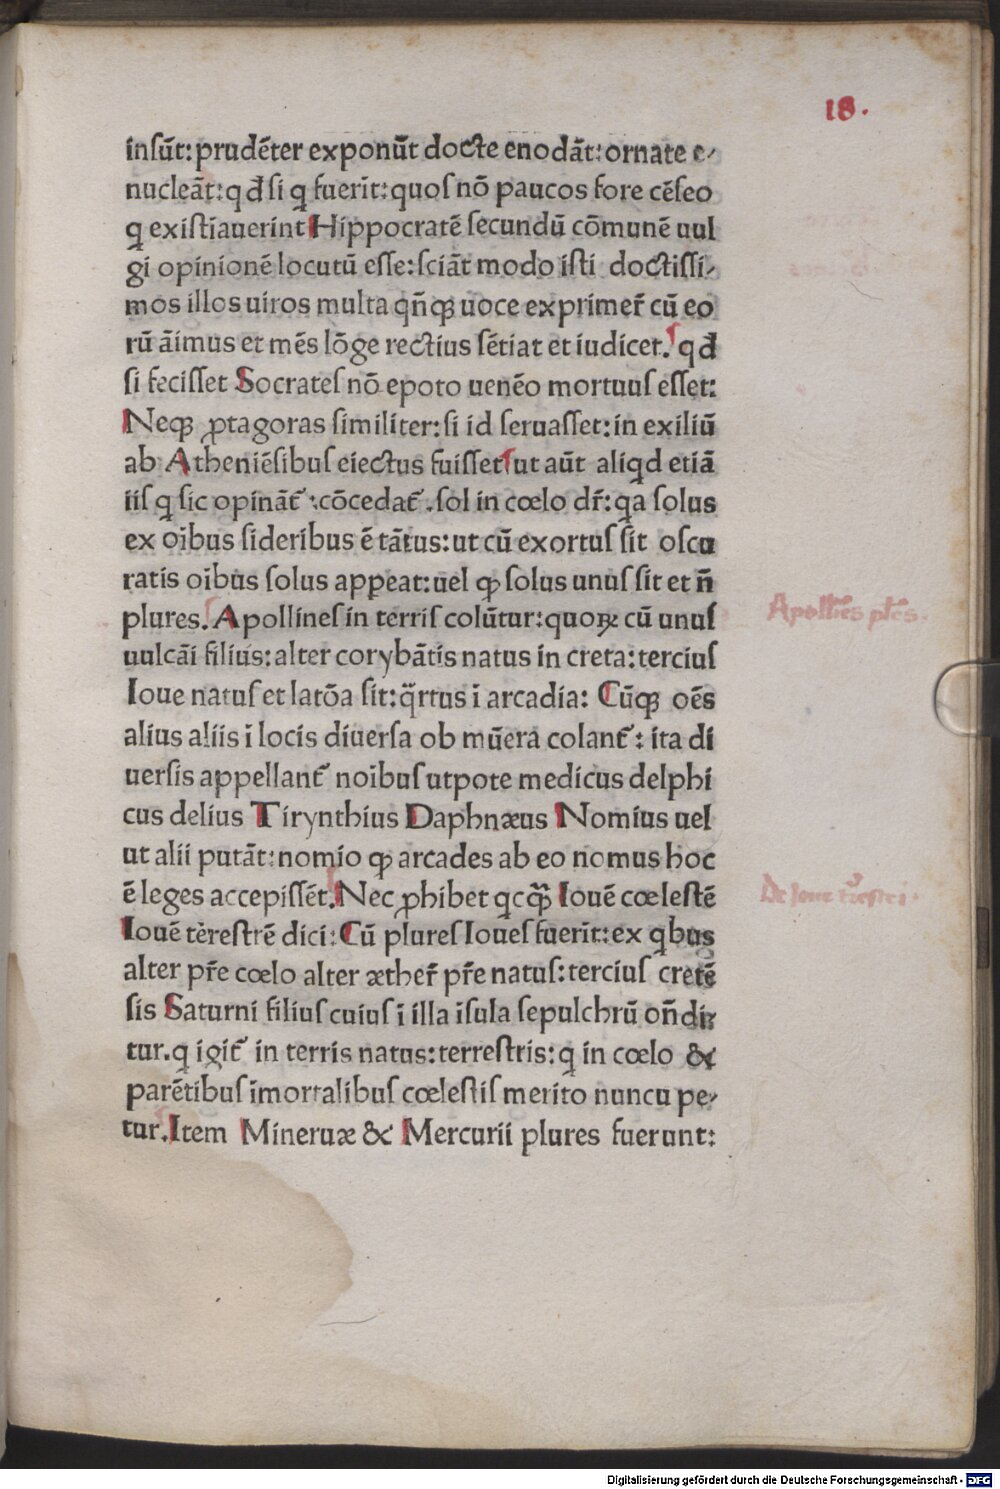 18.
insūt: prudēter exponūt docte enodāt: ornate e-
nucleāt: q đ si q fuerīt: quos nō paucos fore cēseo
q existīauerint Hippocratē secundū cōmunē uul
gi opinionē locutū esse: sciāt modo isti doctissi-
mos illos uiros multa qn̄qꝫ uoce exprimer̄ cū eo
rū āimus et mēs lōge rectius sētiat et iudicet. qđ
si fecisset Socrates nō epoto uenēo mortuus esset:
Neqꝫ ꝓtagoras similiter: si id seruasset: in exiliū
ab Atheniēsibus eiectus fuisset ut aūt aliqd etiā
iis q sic opināt᷑: cōcedat᷑. sol in cœlo dr̄: qa solus
ex oībus sideribus ē tātus: ut cū exortus sit oscu
ratis oībus solus appeat: uel ꝙ solus unus sit et n̄
plures. Apollines in terris colūtur: quoꝝ cū unus
uulcāi filius: alter corybātis natus in creta: tercius
Ioue natus et latōa sit: q̈rtus ī arcadia: Cūqꝫ oēs
alius aliis ī locis diuersa ob mūera colant᷑: ita di
uersis appellant᷑ noībus utpote medicus delphi
cus delius Tirynthius Daphnæus Nomius uel
ut alii putāt: nomio ꝙ arcades ab eo nomus hoc
ē leges accepissēt. Nec ꝓhibet qcq̈ꝫ Iouē cœlestē
Iouē terestrē dici: Cū plures Ioues fuerīt: ex qbus
alter pr̄e cœlo alter æther̄ pr̄e natus: tercius cretē
sis Saturni filius cuius ī illa īsula sepulchrū on̄di-
tur. q igit᷑ in terris natus: terrestris: q in cœlo &
parētibus īmortalibus cœlestis merito nuncu pe-
tur. Item Mineruæ & Mercurii plures fuerunt:
Apollīes pl̄es.
De Ioue t̄restri.
Digitalisierung gefördert durch die Deutsche Forschungsgemeinschaft - DFG